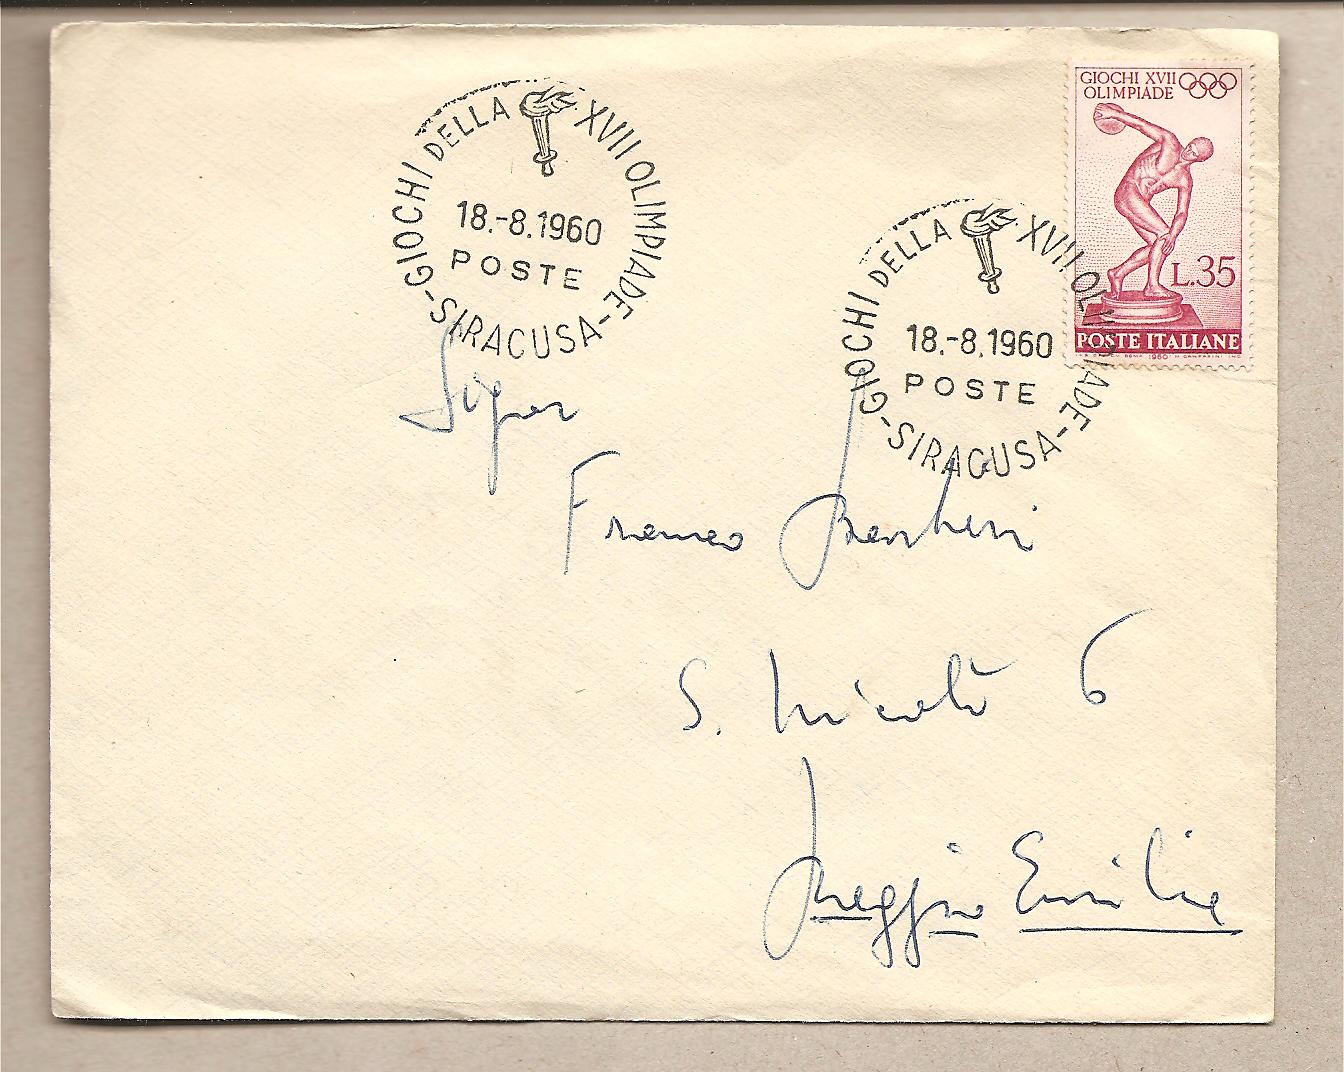 GIOCHI DELLA XVII OLIMPIADE
18.-8.1960
POSTE
-SIRACUSA-
GIOCHI XVII
OLIMPIADE
L.35
POSTE ITALIANE
GIOCHI DELLA XVII OLIMPIADE
18.-8.1960
POSTE
-SIRACUSA-
Franco
S. Nicolò 6
Reggio Emilia